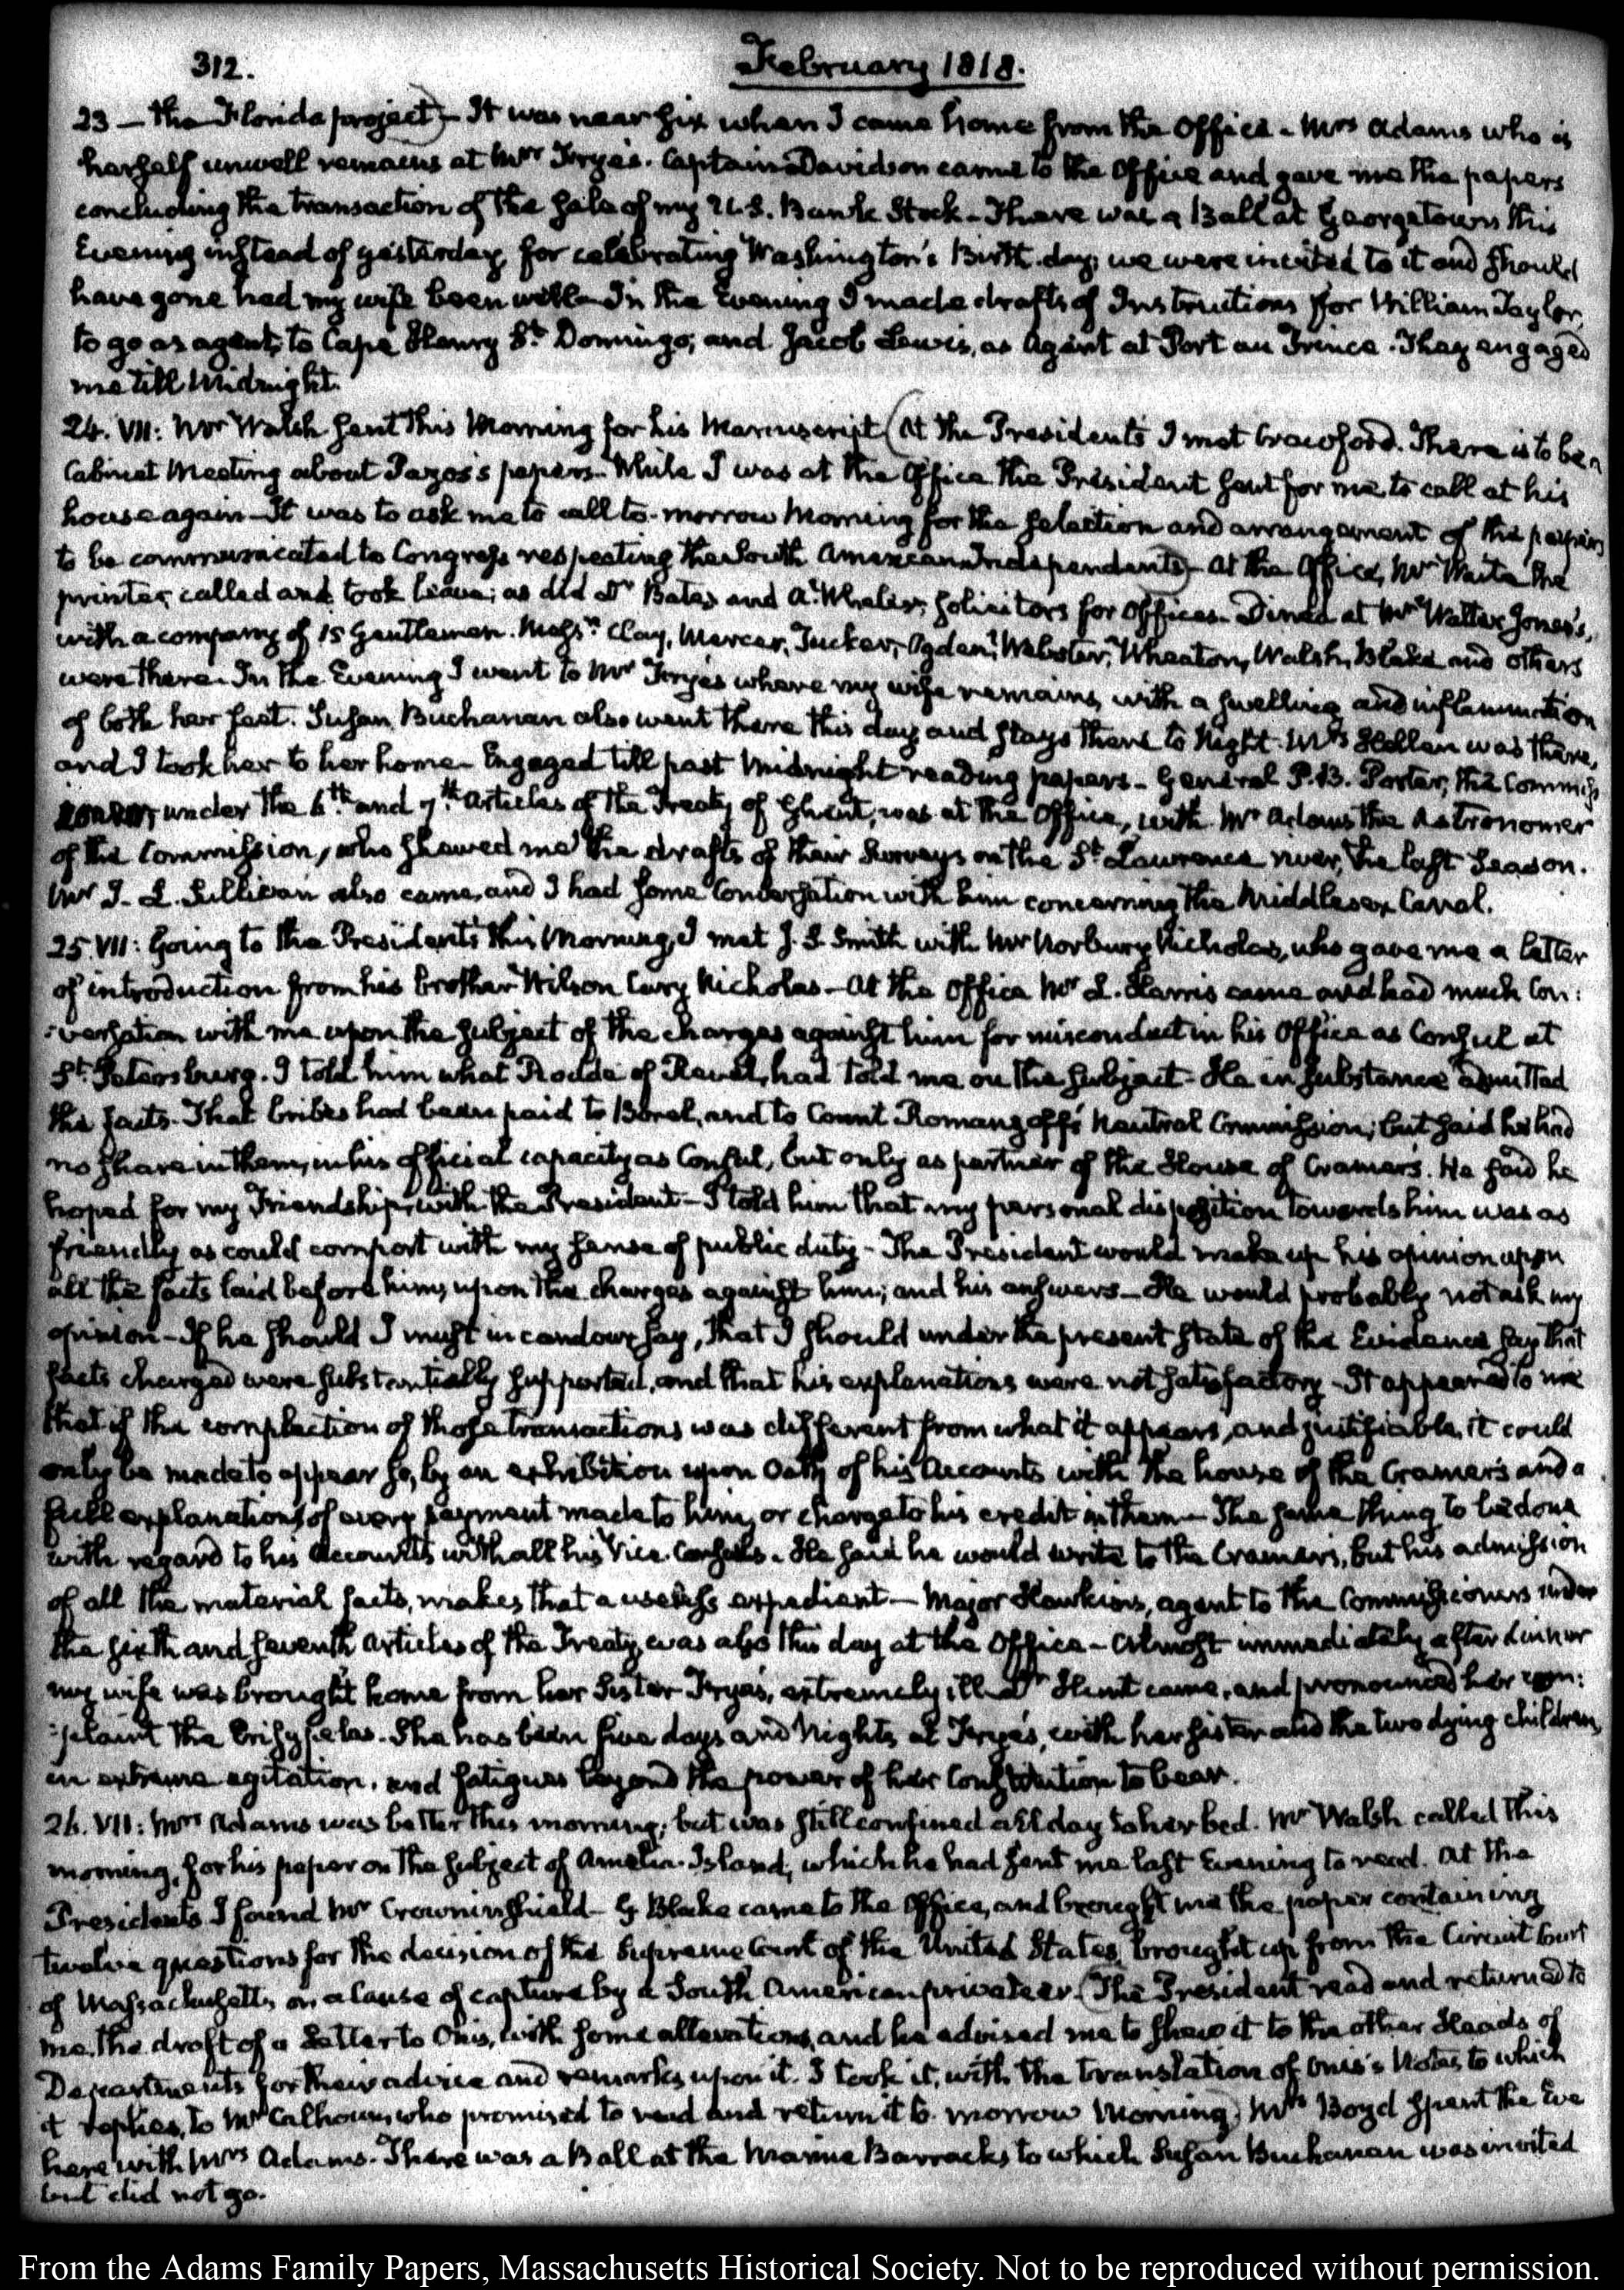 312.
February 1818.
23 — the Florida project) — It was near six when I came home from the Office - Mrs Adams who is
herself unwell remains at Mrs Frye's. Captain Davidson came to the Office and gave me the papers
concluding the transaction of the sale of my U.S. Bank Stock - There was a Ball at Georgetown this
Evening instead of yesterday, for celebrating Washington's Birth-day; we were invited to it and should
have gone had my wife been well - In the Evening I made drafts of Instructions for William Taylor,
to go as agent, to Cape Henry St. Domingo; and Jacob Lewis, as Agent at Port au Prince. They engaged
me till Midnight.
24. VII: Mr Walsh sent this Morning for his Manuscript (At the Presidents I met Crawford. There is to be a
Cabinet Meeting about Pazos's papers - While I was at the Office the President sent for me to call at his
house again - It was to ask me to call to-morrow Morning for the selection and arrangement of the papers
to be communicated to Congress respecting the South American Independents) - At the Office, Mr Waite the
printer, called and took leave; as did Dr Bates and A. Wheeler, solicitors for Offices - Dined at Mr Walter Jones's,
with a company of 15 Gentlemen. Messrs Clay, Mercer, Tucker, Ogden, Webster, Wheaton, Walsh, Blake and others
were there. In the Evening I went to Mr Frye's where my wife remains, with a swelling and inflammation
of both her feet. Susan Buchanan also went there this day and stays there to Night. Mrs Hellen was there,
and I took her to her home - Engaged till past Midnight reading papers - General P. B. Porter, the Commiss
under the 6th and 7th Articles of the Treaty of Ghent, was at the Office, with Mr Adams the Astronomer
of the Commission, who shewed me the drafts of their Surveys on the St Lawrence river, the last Season.
Mr J. L. Sullivan also came, and I had some Conversation with him concerning the Middlesex Canal.
25. VII: Going to the Presidents this Morning, I met J. S. Smith with Mr Norbury Nicholas, who gave me a letter
of introduction from his brother Wilson Cary Nicholas - At the Office Mr L. Harris came and had much Con:
:versation with me upon the subject of the charges against him for misconduct in his Office as Consul at
St. Petersburg. I told him what Rodde of Revel, had told me on the subject - He in substance admitted
the facts. That bribes had been paid to Borel, and to Count Romanzoff's Neutral Commission; but said he had
no share in them, in his official capacity as Consul, but only as partner of the House of Cramers. He said he
hoped for my Friendship, with the President - I told him that my personal disposition towards him was as
friendly as could comport with my sense of public duty - The President would make up his opinion upon
all the facts laid before him, upon the charges against him; and his answers - He would probably not ask my
opinion - If he should I must in candour say, that I should under the present state of the Evidence say that
facts charged were substantially supported, and that his explanations were not satisfactory - It appeared to me
that if the complection of those transactions was different from what it appears, and justifiable, it could
only be made to appear so, by an exhibition upon Oath of his Accounts with the house of the Cramers and a
full explanation of every payment made to him, or charge to his credit in them - The same thing to be done
with regard to his Accounts with all his Vice-Consuls - He said he would write to the Cramers, but his admission
of all the material facts, makes that a useless expedient - Major Hawkins, agent to the Commissioners under
the sixth and seventh Articles of the Treaty, was also this day at the Office - Almost immediately after dinner
my wife was brought home from her Sister Frye's, extremely ill - Dr Hunt came, and pronounced her com:
:plaint the Erisypelas. She has been five days and Nights at Frye's, with her sister and the two dying children,
in extreme agitation, and fatigues beyond the power of her Constitution to bear.
26. VII: Mrs Adams was better this morning; but was still confined all day to her bed. Mr Walsh called this
morning, for his paper on the subject of Amelia-Island, which he had sent me last Evening to read. At the
Presidents I found Mr Crowninshield - G Blake came to the Office, and brought me the paper containing
twelve questions for the decision of the Supreme Court of the United States, brought up from the Circuit Court
of Massachusetts, on a Cause of capture by a South American privateer. (The President read and returned to
me, the draft of a Letter to Onis, with some alterations, and he advised me to shew it to the other Heads of
Departments for their advice and remarks upon it. I took it, with the translation of Onis's Notes, to which
it replies, to Mr Calhoun, who promised to read and return it to-morrow Morning) Mrs Boyd spent the Eve
here with Mrs Adams. There was a Ball at the Marine Barracks to which Susan Buchanan was invited
but did not go.
From the Adams Family Papers, Massachusetts Historical Society. Not to be reproduced without permission.